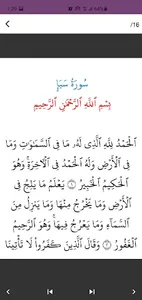 1:29
/16
سُورَةُ سَبَإٍ
بِسْمِ ٱللَّهِ ٱلرَّحْمَٰنِ ٱلرَّحِيمِ
ٱلْحَمْدُ لِلَّهِ ٱلَّذِى لَهُۥ مَا فِى ٱلسَّمَٰوَٰتِ وَمَا
فِى ٱلْأَرْضِ وَلَهُ ٱلْحَمْدُ فِى ٱلْءَاخِرَةِ ۚ وَهُوَ
ٱلْحَكِيمُ ٱلْخَبِيرُ ١ يَعْلَمُ مَا يَلِجُ فِى
ٱلْأَرْضِ وَمَا يَخْرُجُ مِنْهَا وَمَا يَنزِلُ مِنَ
ٱلسَّمَآءِ وَمَا يَعْرُجُ فِيهَا ۚ وَهُوَ ٱلرَّحِيمُ
ٱلْغَفُورُ ٢ وَقَالَ ٱلَّذِينَ كَفَرُوا۟ لَا تَأْتِينَا